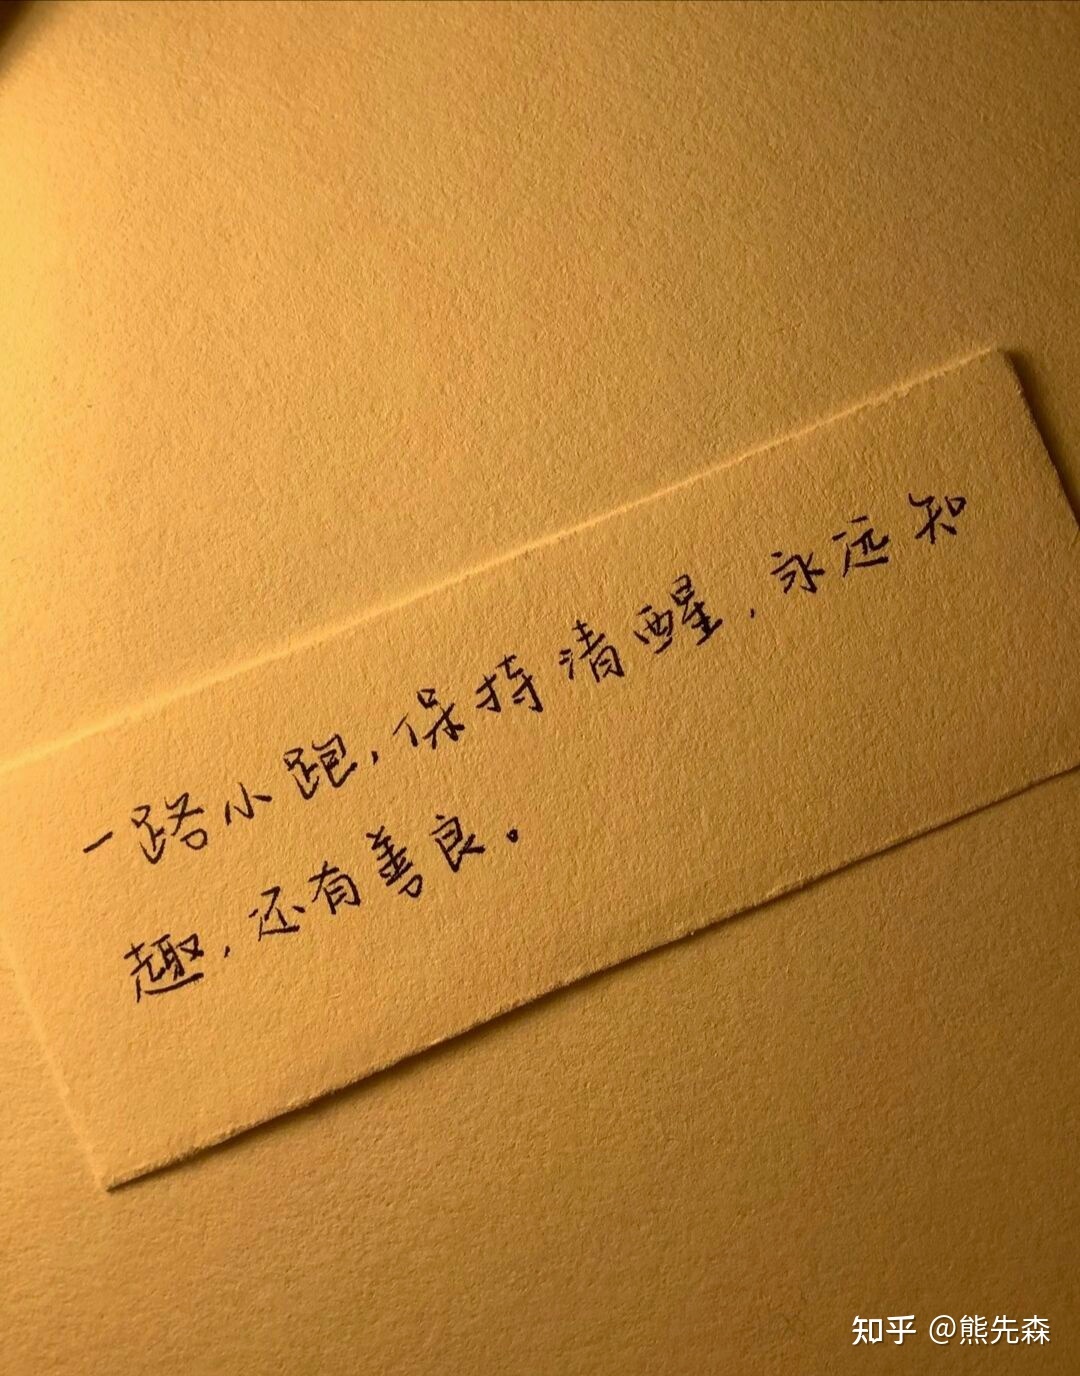 一路小跑，保持清醒，永远知
趣，还有善良。
知乎 @熊先森